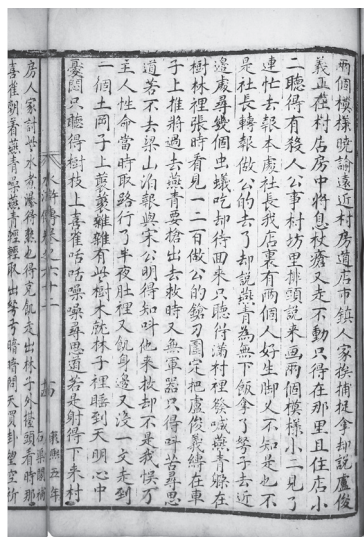 兩個模樣曉諭遠近村房道店市鎮人家挨捕捉拿却說盧俊
義正在村店房中將息杖瘡又走不動只得在那里且住店小
二聽得有殺人公事村坊里排頭説来画兩個模樣小二見了
連忙去報本處社長我店裏有兩個人好生脚叉不知是也不
是社長轉報做公的去了却説燕青為無下飯拿了弩子去近
邊處尋幾個虫蟻吃却待囬来只聽得滿村里發喊燕青躲在
樹林裡張時看見一二百做公的鎗刀圍定把盧俊義縛在車
子上推將過去燕青要搶出去救時又無軍器只得叫苦尋思
道若不去梁山泊報與宋公明得知叫他来救却不是我悞了
主人性命當時取路行了半夜肚裡又飢身邊又没一文走到
一個土岡子上叢叢雜雜有些樹木就林子裡睡到天明心中
憂悶只聽得樹枝上喜雀咕咕噪噪尋思道若是射得下来村
水滸傳卷之六十二
房人家討些水煮瀑得熟也得充飢走出林子外擡頭看時那
喜雀朝着燕青噪燕青輕輕取出弩弓暗暗問天買卦望空祈